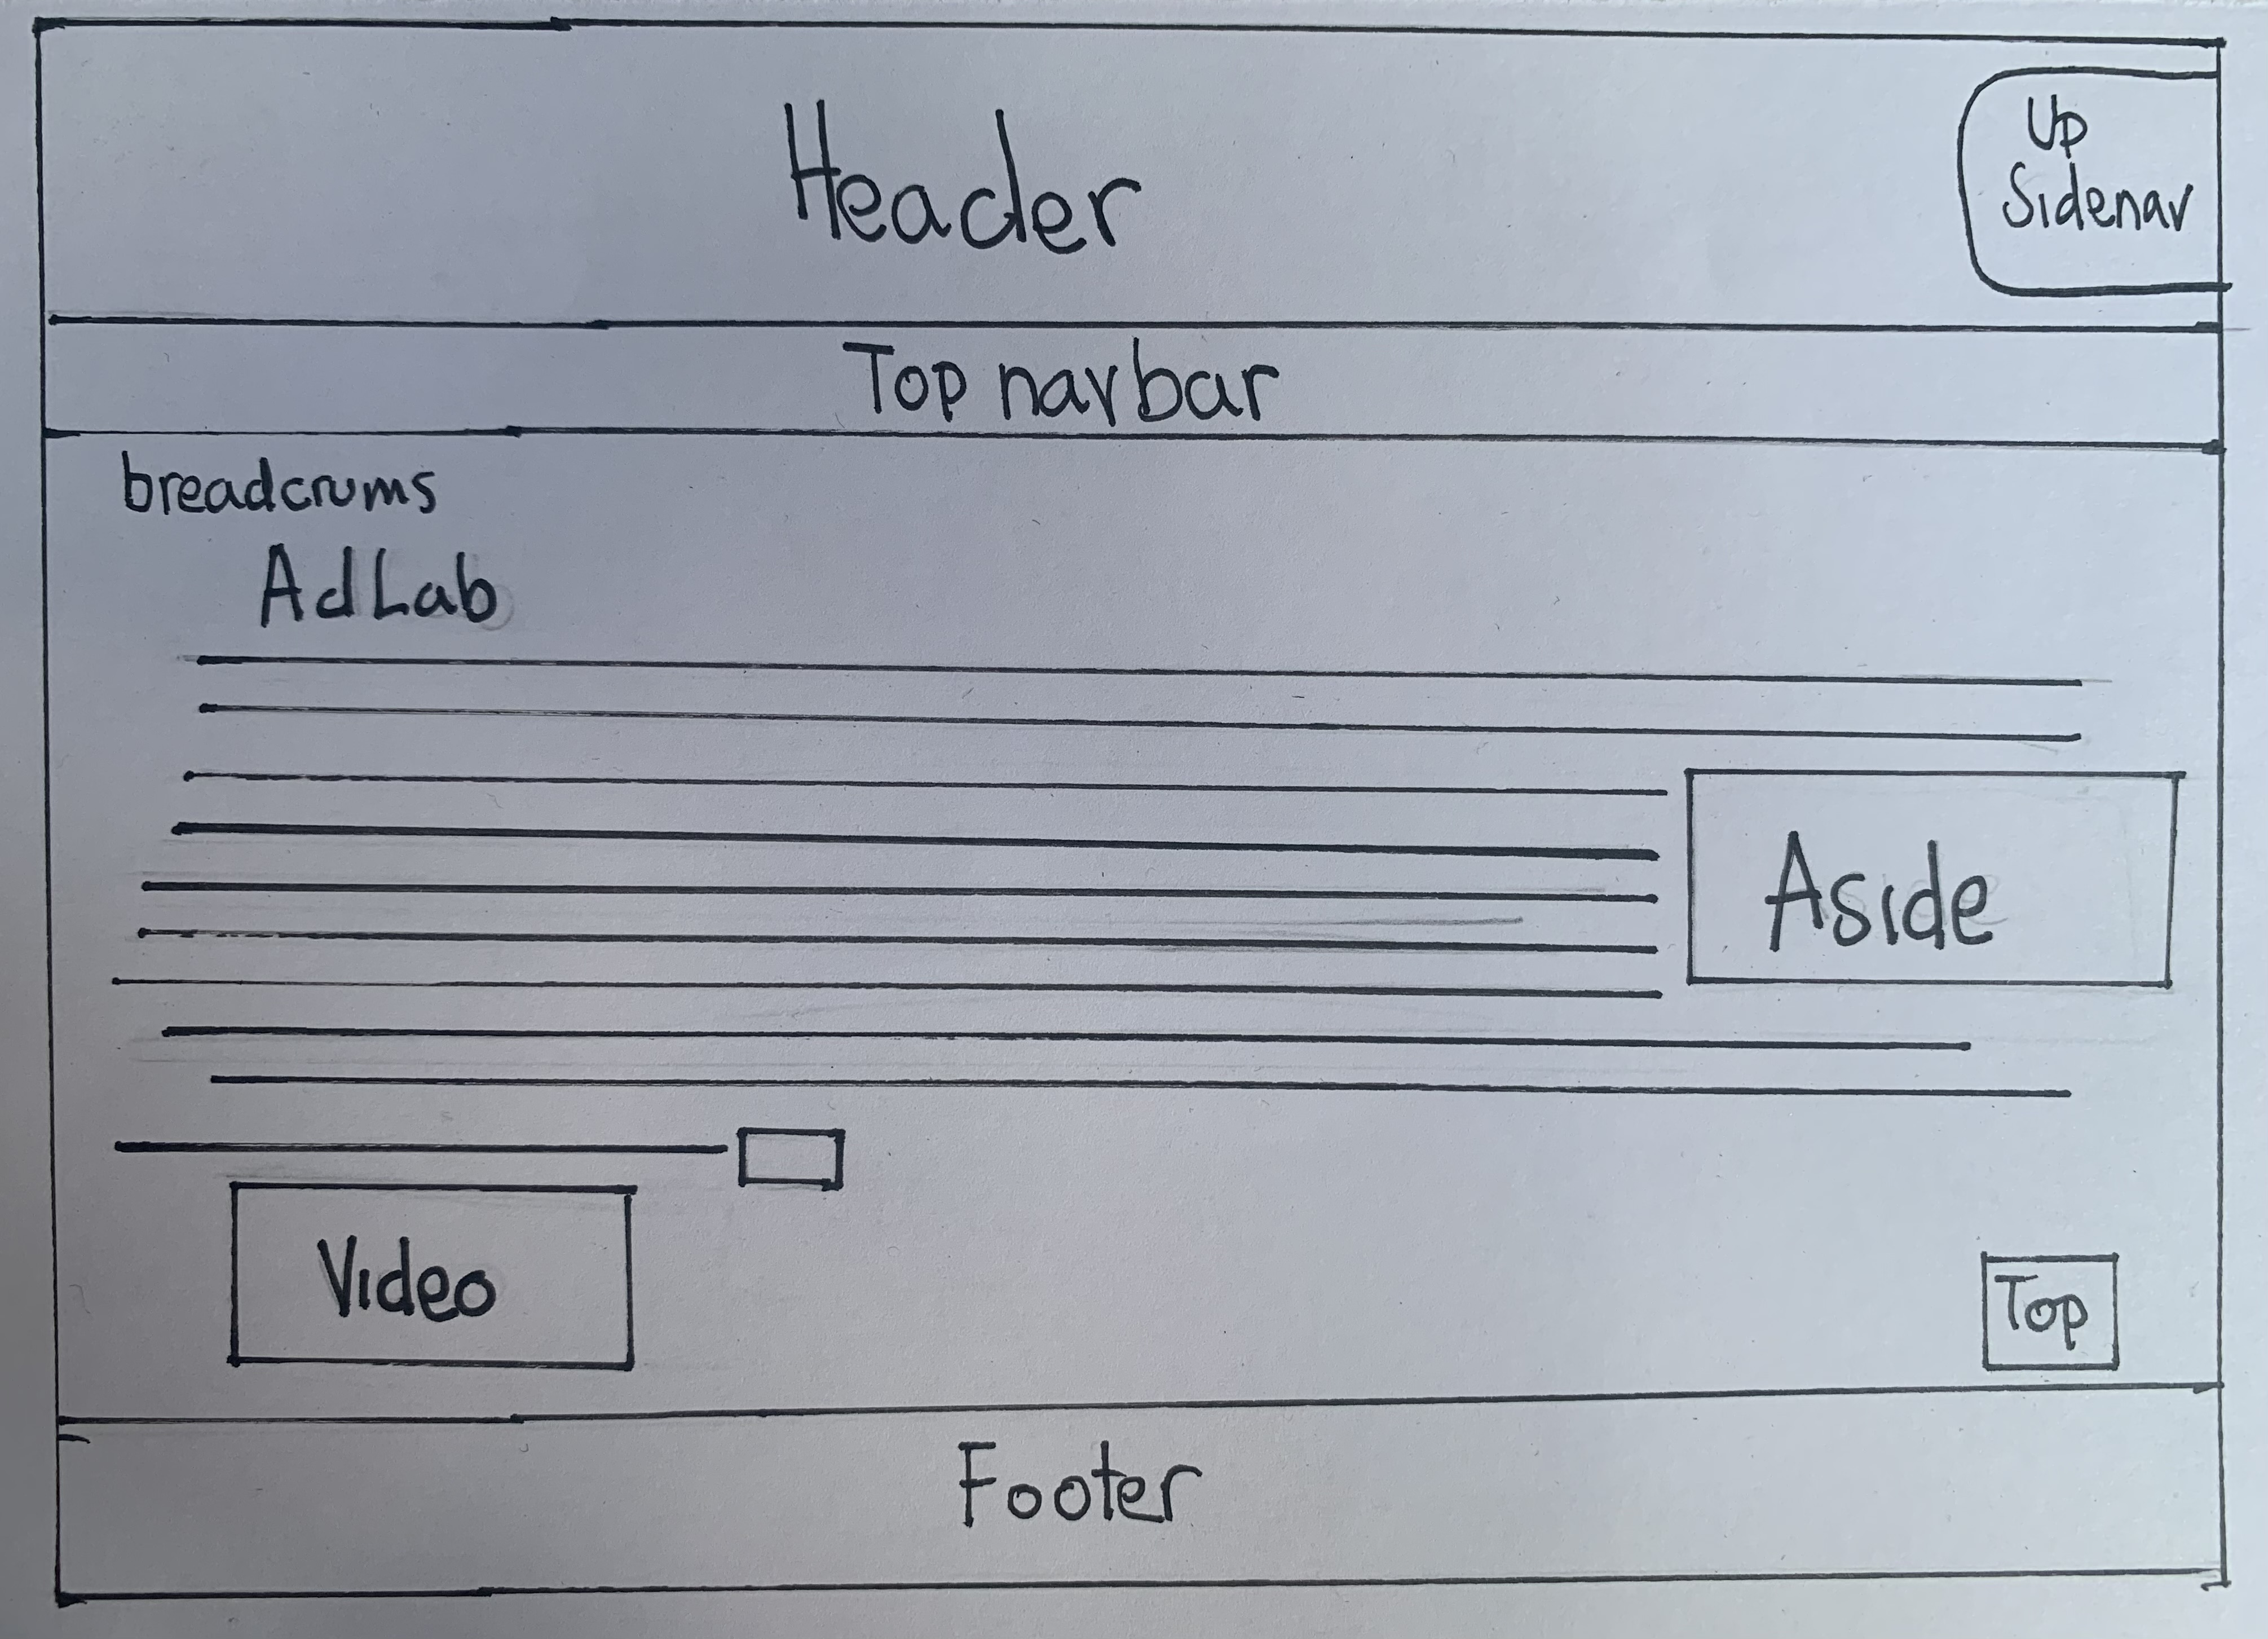 Header
Up
Sidenav
Top navbar
breadcrums
AdLab
Aside
Video
Top
Footer